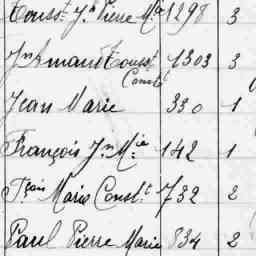 Touss.t J.n Pierre M.a 1298 3
J.n Amand Touss.t 1303 3
Const.t
Jean Marie 330 1
François J.n M.ie 142 1
F.çois Marie Const.t 732 2
Paul Pierre Marie 834 2